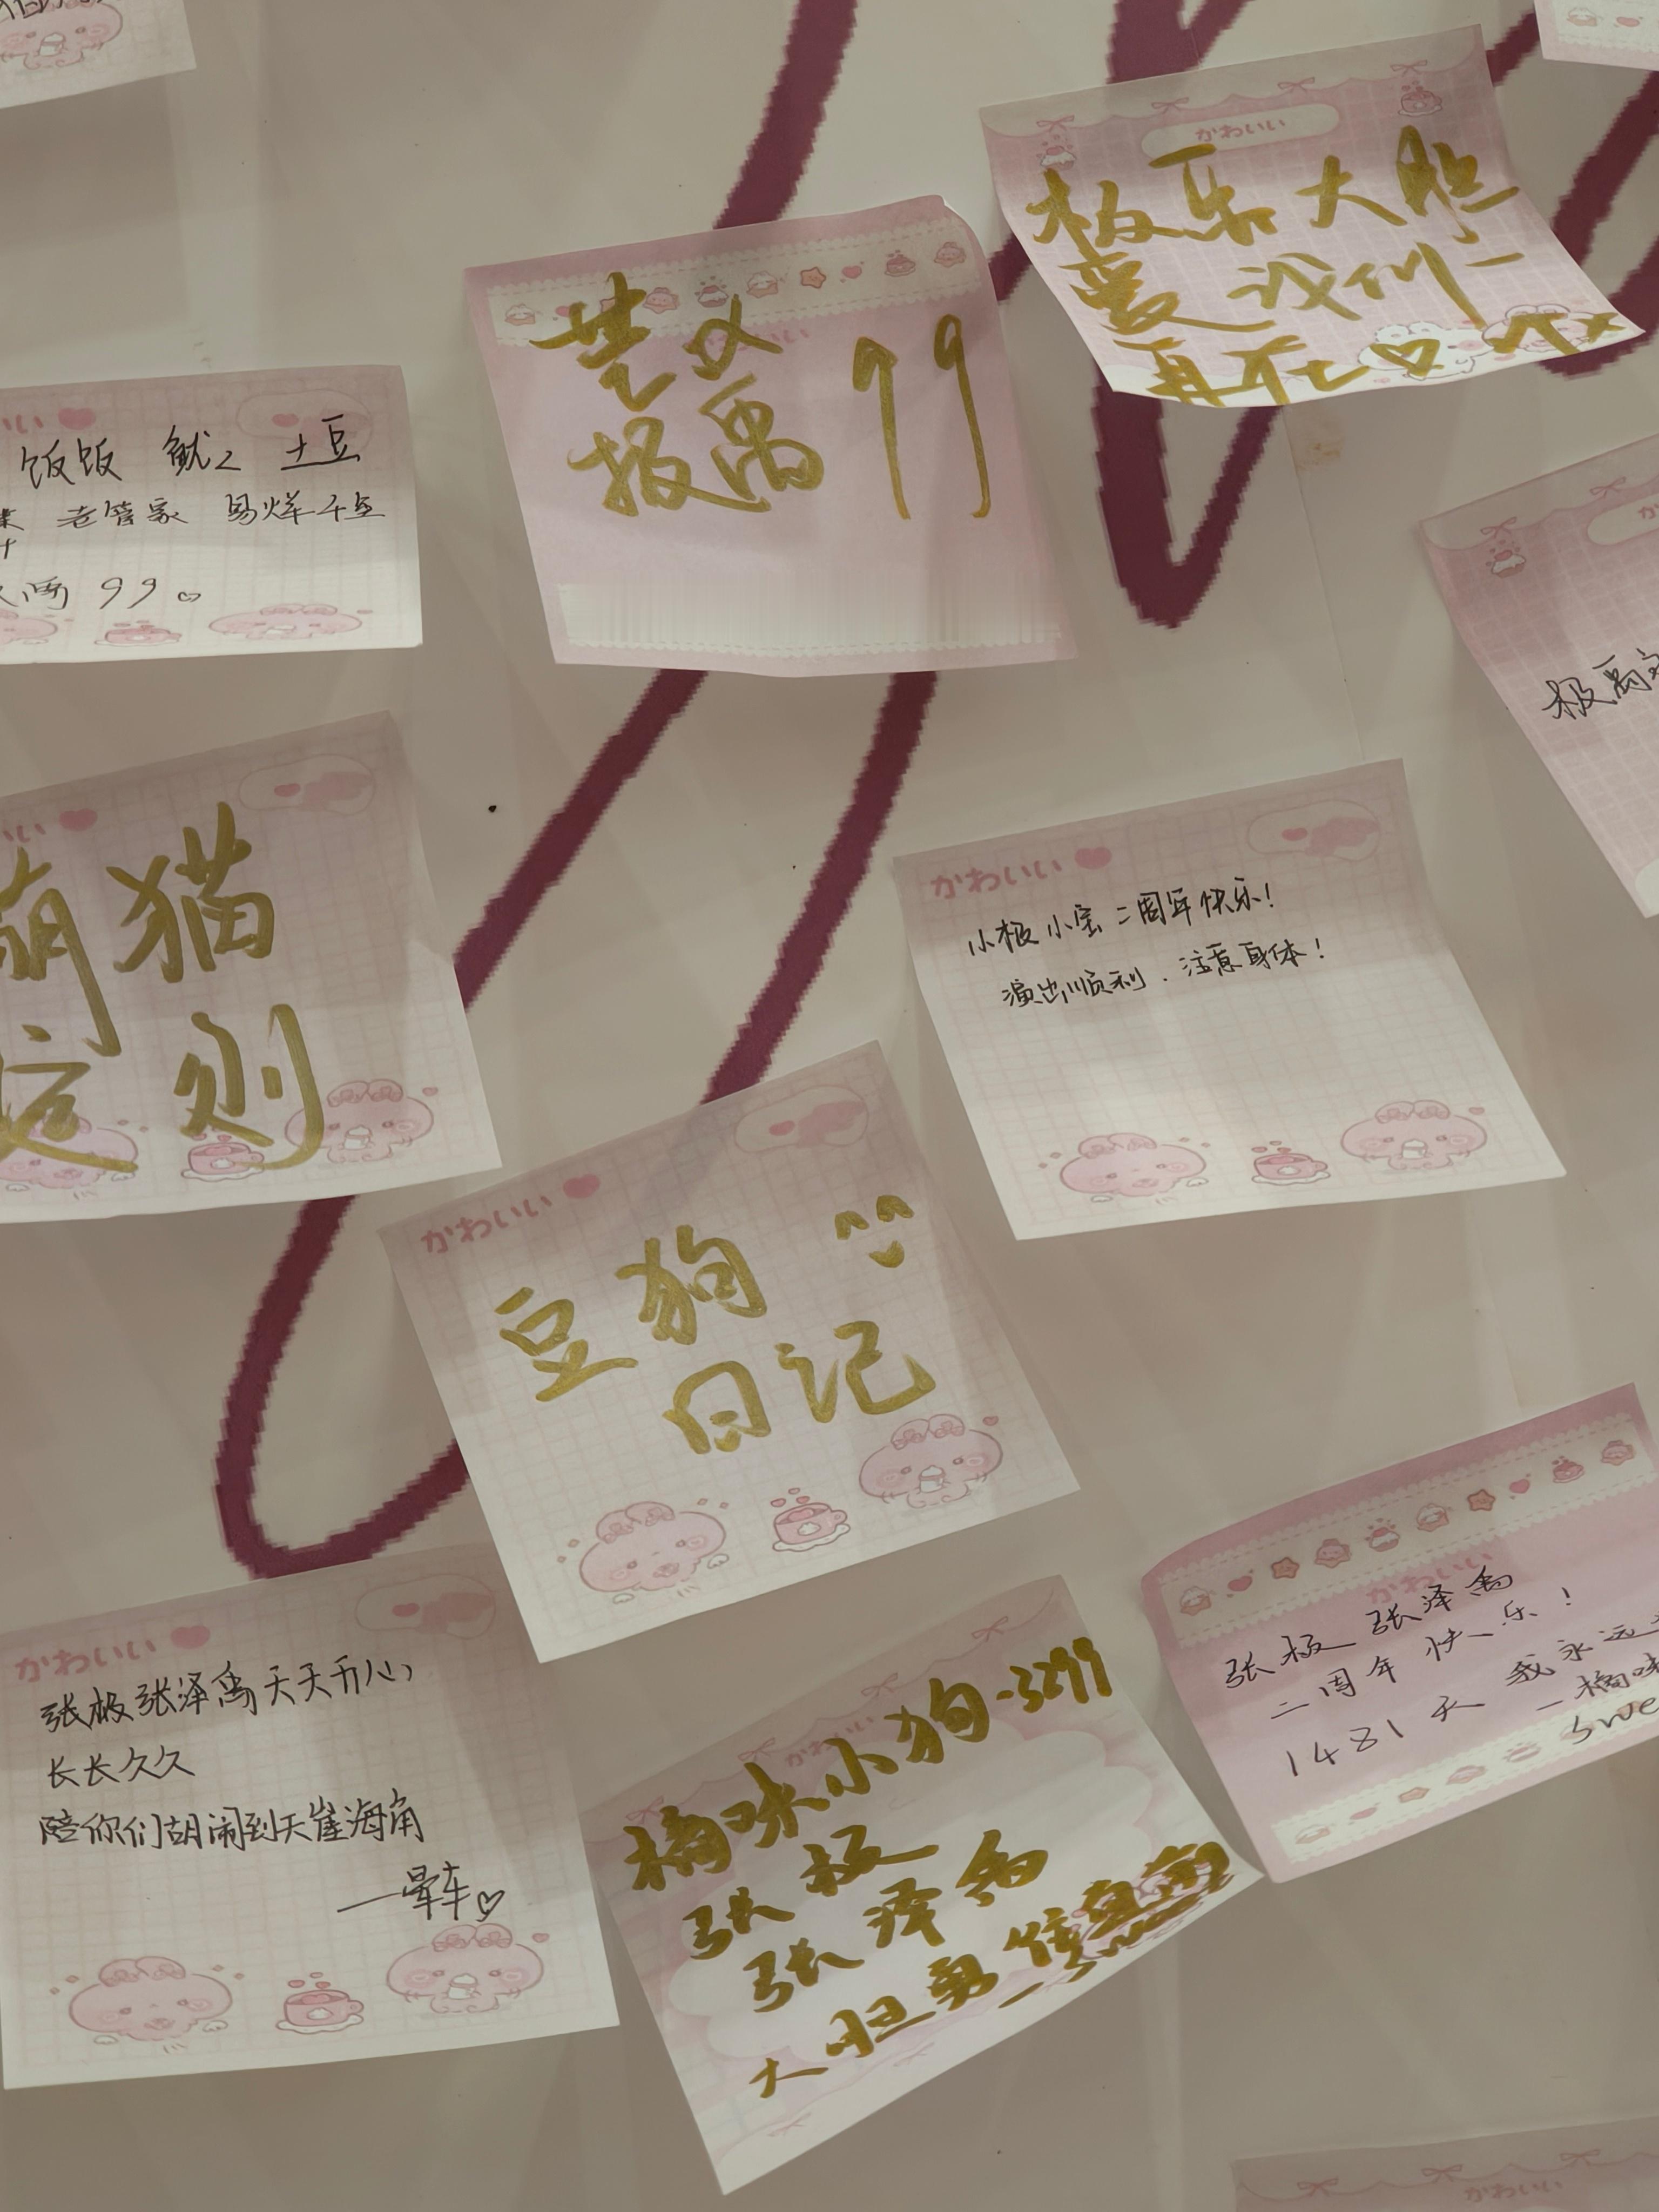 かわいい
极乐大胆
爱 我们一
再在
楚汉
极禹 99
饭饭 鱿2 土豆
老管家 易烊千玺
99
极禹
萌猫
定则
かわいい
小极小宝二周年快乐！
演出顺利．注意身体！
かわいい
豆狗
日记
かわいい
张极 张泽禹
二周年 快乐！
1481天 我永远
一橘味
swe
かわいい
张极张泽禹天天开心
长长久久
陪你们胡闹到天崖海角
——晕车
橘味小狗-3299
张极
张泽禹
大胆勇
かわいい